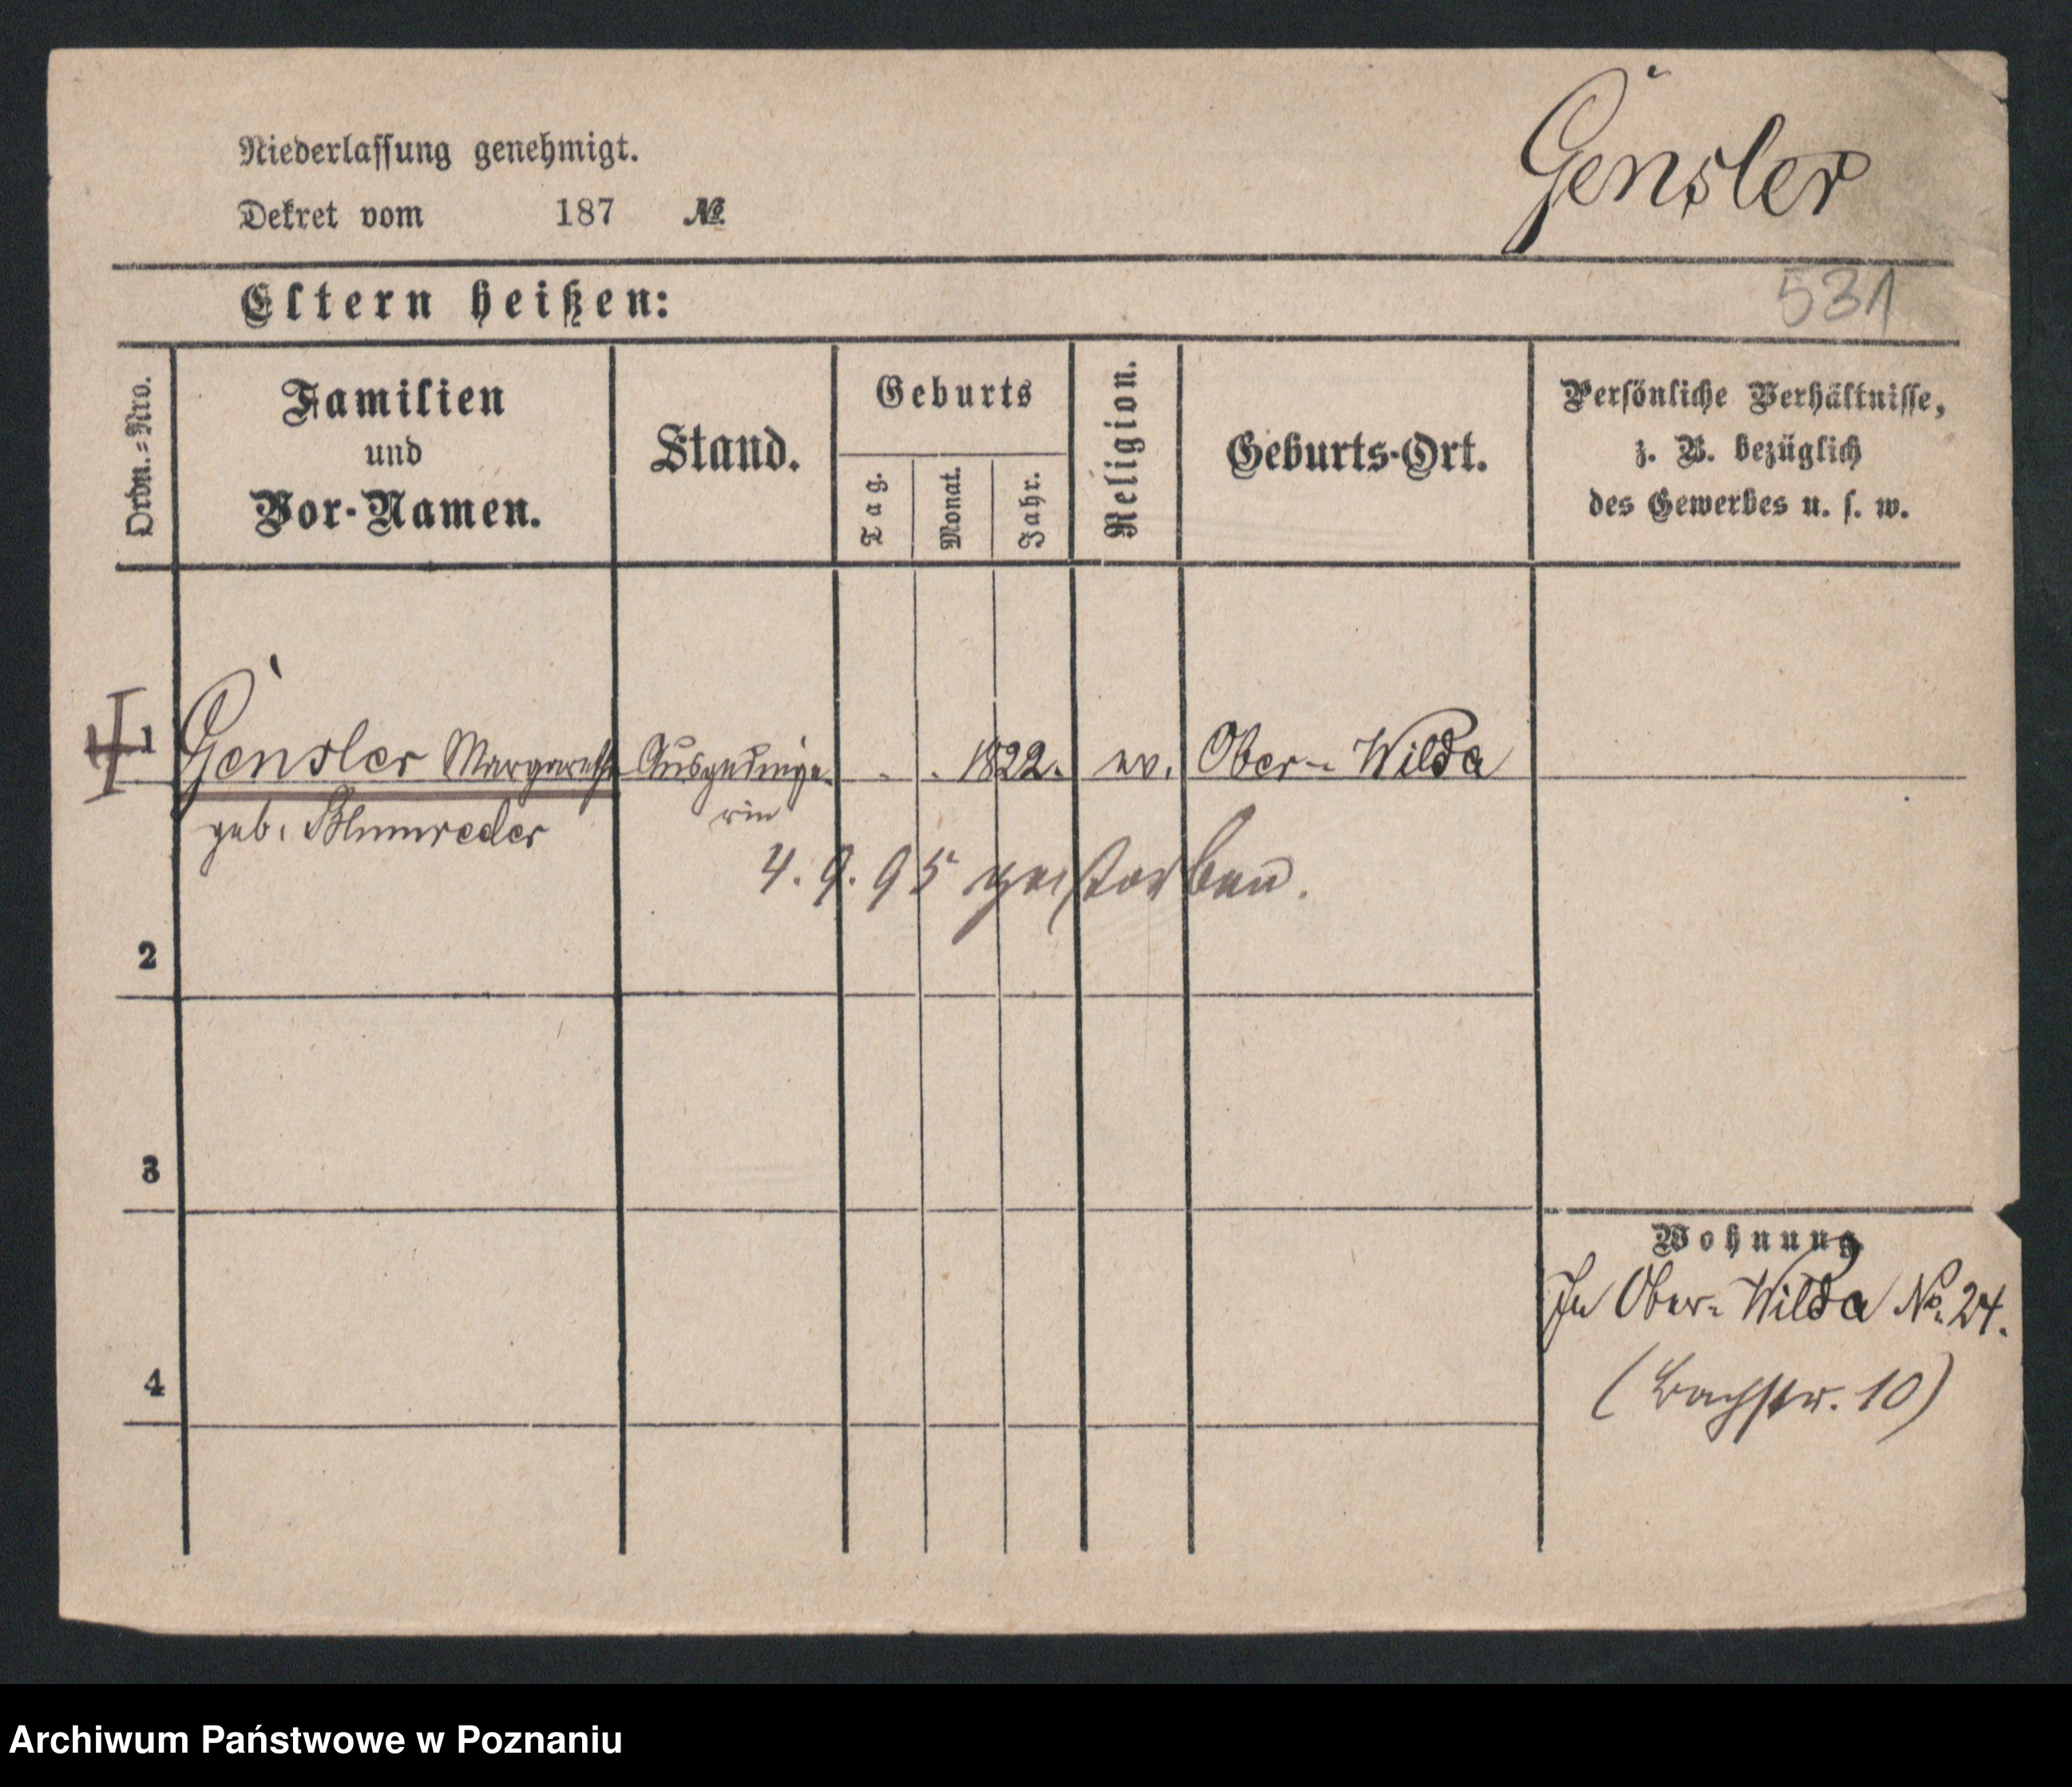 Niederlassung genehmigt.
Gensler
Dekret vom 187 №
Eltern heißen:
531
Ordn.=Nro.
Familien
und
Vor-Namen.
Stand.
Geburts
Tag.
Monat.
Jahr.
Religion.
Geburts-Ort.
Persönliche Verhältnisse,
z. B. bezüglich
des Gewerbes u. s. w.
1 Gensler Margarethe Ausgedinge- . . 1822. ev. Ober- Wilda
rin
geb. Blumreder
4. 9. 95 gestorben.
2
3
Wohnung
In Ober- Wilda No. 24.
(Bachstr. 10)
4
Archiwum Państwowe w Poznaniu